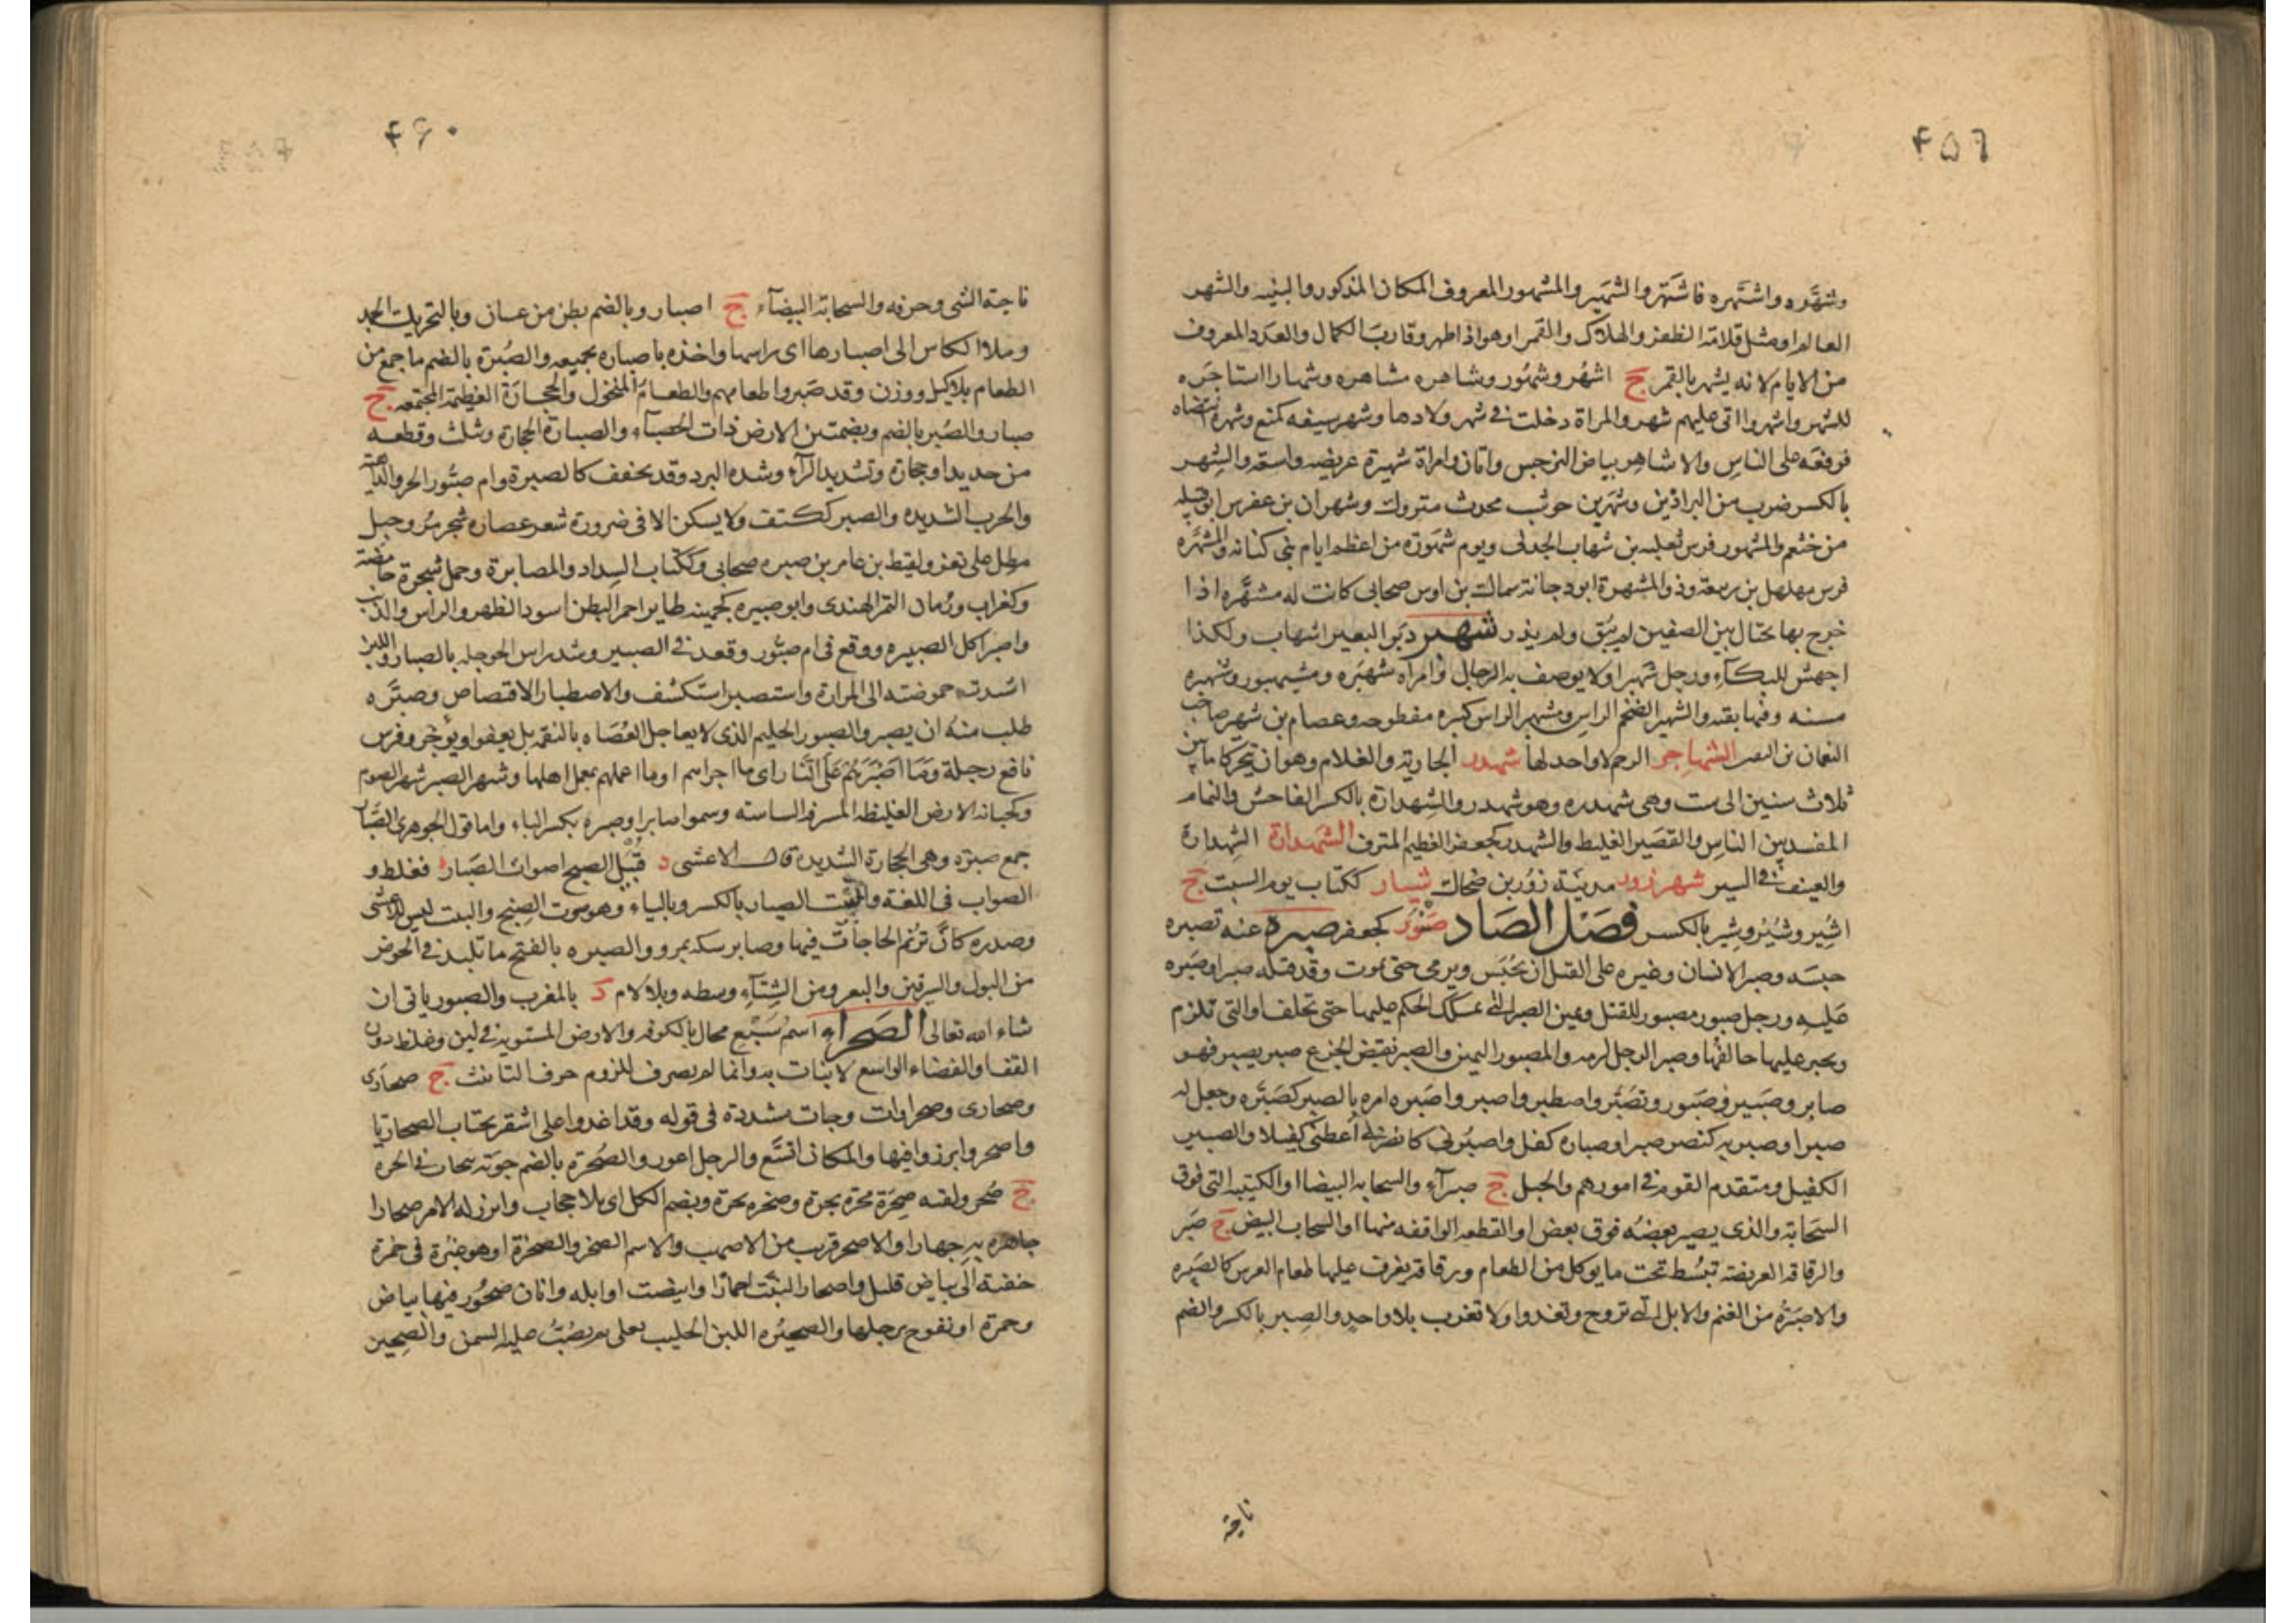 ۴۵۹
وشهَّره واشتهره فاشتهر والشهير والمشهور المعروف المكان المذكور والنبيه والشهر
العالم او مثل قلامة الظفر والهلال والقمر او هو اذا ظهر وقارب الكمال والعدد المعروف
من الايام لانه يشهر بالقمر ج اشهُر وشهُور وشاهره مشاهره وشهارا استاجَره
للشهر واشهروا اتى عليهم شهر والمراة دخلت فى شهر ولادها وشهر سيفه كمنع وشهره انتضاه
فرفعه على الناس والاشاهر بياض النرجس واتان وامراة شهيرة عريضه واسعة والشهر
بالكسر ضرب من البراذين وشهر بن حوشب محدث متروك وشهران بن عفرس ابو قبيله
من خثعم والمشهور فرس ثعلبه بن شهاب الجدلى ويوم شهورة من اعظم ايام بنى كنانه والمشهَّره
فرس مهلهل بن ربيعة وذو المشهرة ابو دجانة سماك بن اوس صحابى كانت له مشهَّره اذا
خرج بها يختال بين الصفين لم يُبق ولم يذر شهبر دبَر البعير اشهاب ولكذا
اجهش للبكآء ورجل شهبر او لا يوصف به الرجال وامراه شهبَره ومشيهبور وشهبره
مسنه وفيها بقيه والشهبر الضخم الراس ومشهبر الراس كبيره مفطوحه وعصام بن شهبر صاحب
النعمان بن الشهاجر الرخم لا واحد لها شهدر الجارية والغلام وهو ان يتحركا ما بين
ثلاث سنين الى ست وهى شهدره وهو شهدر والشِهدارة بالكسر الفاحش والنمام
المفسد بين الناس والقصَير الغليظ والشهدر كجعفر العظيم المترف الشهذارة الشِهدارة
والعنيف فى السير شهرزور مدينة زوُر بن ضحاك شيار ككتاب يوم السبت ج
اشيِر وشُيُر وشِير بالكسر فصَل الصَاد صَنَوْبَر كجعفر صبره عنه تصبره
حبسَه وصبر الانسان وغيره على القتل ان يُحبَس ويرمى حتى يموت وقد قتله صبرا وصبَره
عَليه ورجل صبور مصبور للقتل ويمين الصبر التى يمسكك الحكم عليها حتى تحلف او التى تلزم
ويجبر عليها حالفُها وصبر الرجل لزمه والمصبور اليمين والصبر نقيض الجزع صبر يصبر فهو
صابر وصَبير وصَبور وتصَبَّر واصطبر واصبر واصَبره امره بالصبر كصَبَّره وجعل له
صبرا وصبر به كنصر صبرا وصباره كفل واصبُرنى كانصرنى أعطنى كفيلا والصبير
الكفيل ومتقدم القوم فى امورهم والجبل ج صبرآء والسحابه البيضا او الكثيفه التى فوق
السَحابة والذى يصير بعضُه فوق بعض او القطعه الواقفه منها او السحاب البيض ج صُبر
والرقاقه العريضه تبسُط تحت ما يوكل من الطعام ورقاقه يغرف عليها طعام العرس كالصَبيره
والاصبَرَةُ من الغنم والابل التى تروح وتغدوا ولا تغرب بلا واحدٍ والصِبر بالكسر والضم
ناحيته
۴۶۰
ناحيته الشى وحرفه والسحابة البيضآء ج اصبار وبالضم بطن من غسان وبالتحريك الجمد
وملا الكاس الى اصبارها اى راسها واخذه باصباره بجميعه والصُبرَة بالضم ما جمع من
الطعام بلا كيل ووزن وقد صَبروا طعامهم والطعَام المنخول والحجَارَة الغليظة المجتمعه ج
صبار والصُبر بالضم وبضمتين الارض ذات الحَصبآء والصبارة الحجارة وتثلث وقطعه
من حديد او حجارة وتشديد الرآء وشده البرد وقد يخفف كالصبرة وام صبُّور الحر والداهية
والحرب الشديده والصبر ككتف ولا يسكن الا فى ضرورة شعر عصاره شجر مُر وجبل
مطل على تعز ولقيط بن عامر بن صبره صحابى وككتاب السِداد والمصابرة وحمل شجرة حامضة
وكغراب ورُمان التمر الهندى وابو صبيره كجهينه طاير احمر البطن اسود الظهر والراس والذنب
واصبر اكل الصبيره ووقع فى ام صبُّور وقعد فى الصبير وشد راس الحوجله بالصبار واللبن
اشدت حموضته الى المرارة واستصبر استكثف والاصطبار الاقتصاص وصبَّره
طلب منه ان يصبر والصبور الحليم الذى لا يعاجل العُصَاه بالنقمة بل يعفوا ويوخر وفرس
نافع بن جبلة ومَا اصْبَرَهُمْ عَلَى النَّار اى ما اجراهم او ما اعملهم بعمل اهلها وشهر الصبر شهر الصوم
وكجبانه الارض الغليظه المشرفه الشاسه وسموا صابرا وصبره بكسر الباء واما قول الجوهرى الصَبار
جمع صبرَه وهى الحجارة الشديده قال الاعشى قُبَيل الصبح اصوات الصَبار فغلط و
الصواب فى اللغة والبيت الصيار بالكسر وبالياء وهو صوت الصِنج والبت ليس للاعشى
وصدره كانَّ ترنُم الهاجات فيها وصابر سكه بمرو والصبره بالفتح ما تلبد فى الحوض
من البول والسِرقين والبعر ومن الشِتآء وسطه وبلا لام د بالمغرب والصبور ياتى ان
شاء الله تعالى الصَحراءِ اسم سَبْع محال بالكوفه والارض المستوية فى لين وغلظ دون
القف او الفضاء الواسع لا نبات به وانما لم يصرف للزوم حرف التانيث ج صحاَرى
وصحارى وصحراوات وجات مشددة فى قوله وقد اغدوا على اشقر يجتاب الصحاريا
واصحروا برزوا فيها والمكان اتسَّع والرجل اعور والصُحرَة بالضم جوَبة تنجاب فى الحره
ج صُحر ولقيه صَحِرَة بَحرَة وصحَره بحرة وبضم الكل اى بلا حجاب وابرز له الامر صحارا
جاهره به جهارا والاصحر قريب من الاصهب والاسم الصَحر والصحرَة او هو غبُرة فى حمرَة
خفيَّه الى بياض قليل واصحار النبت احمارَّ وابيضت اوايله واتان صحُور فيها بياض
وحمرة او نفوح برجلها والصحيرُه اللبن الحليب يغلى ثم يصُبُّ عليه السمن والصحِير